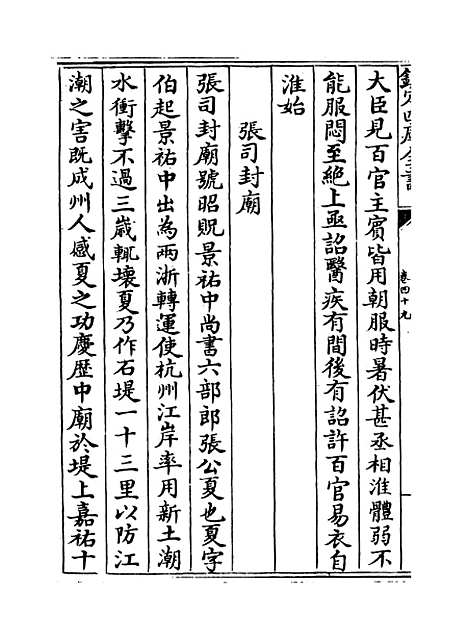 欽定四庫全書
卷四十九
大臣見百官主賓皆用朝服時暑伏甚丞相淮體弱不
能服悶至絶上亟詔醫疾有間後有詔許百官易衣自
淮始
張司封廟
張司封廟號昭貺景祐中尚書六部郎張公夏也夏字
伯起景祐中出為兩浙轉運使杭州江岸率用新土潮
水衝擊不過三歲輒壞夏乃作石堤一十三里以防江
潮之害既成州人感夏之功慶歴中廟於堤上嘉祐十